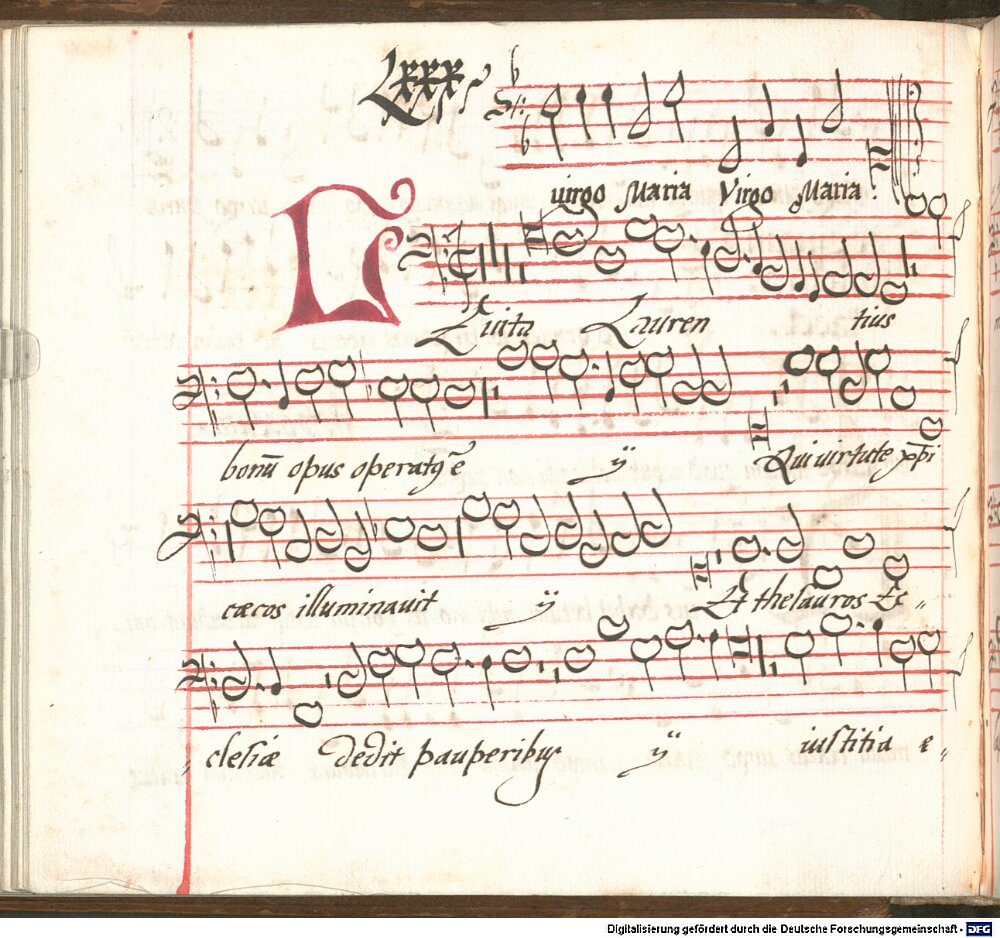 Lxxxj
uirgo Maria Virgo Maria.
L
Leuita Lauren tius
bonū opus operatꝰ ē ÿ Qui uirtute xp̄i
cæcos illuminauit ÿ Et thesauros Ec„
„ clesiæ dedit pauperibus ÿ iustitia e„
Digitalisierung gefördert durch die Deutsche Forschungsgemeinschaft - DFG